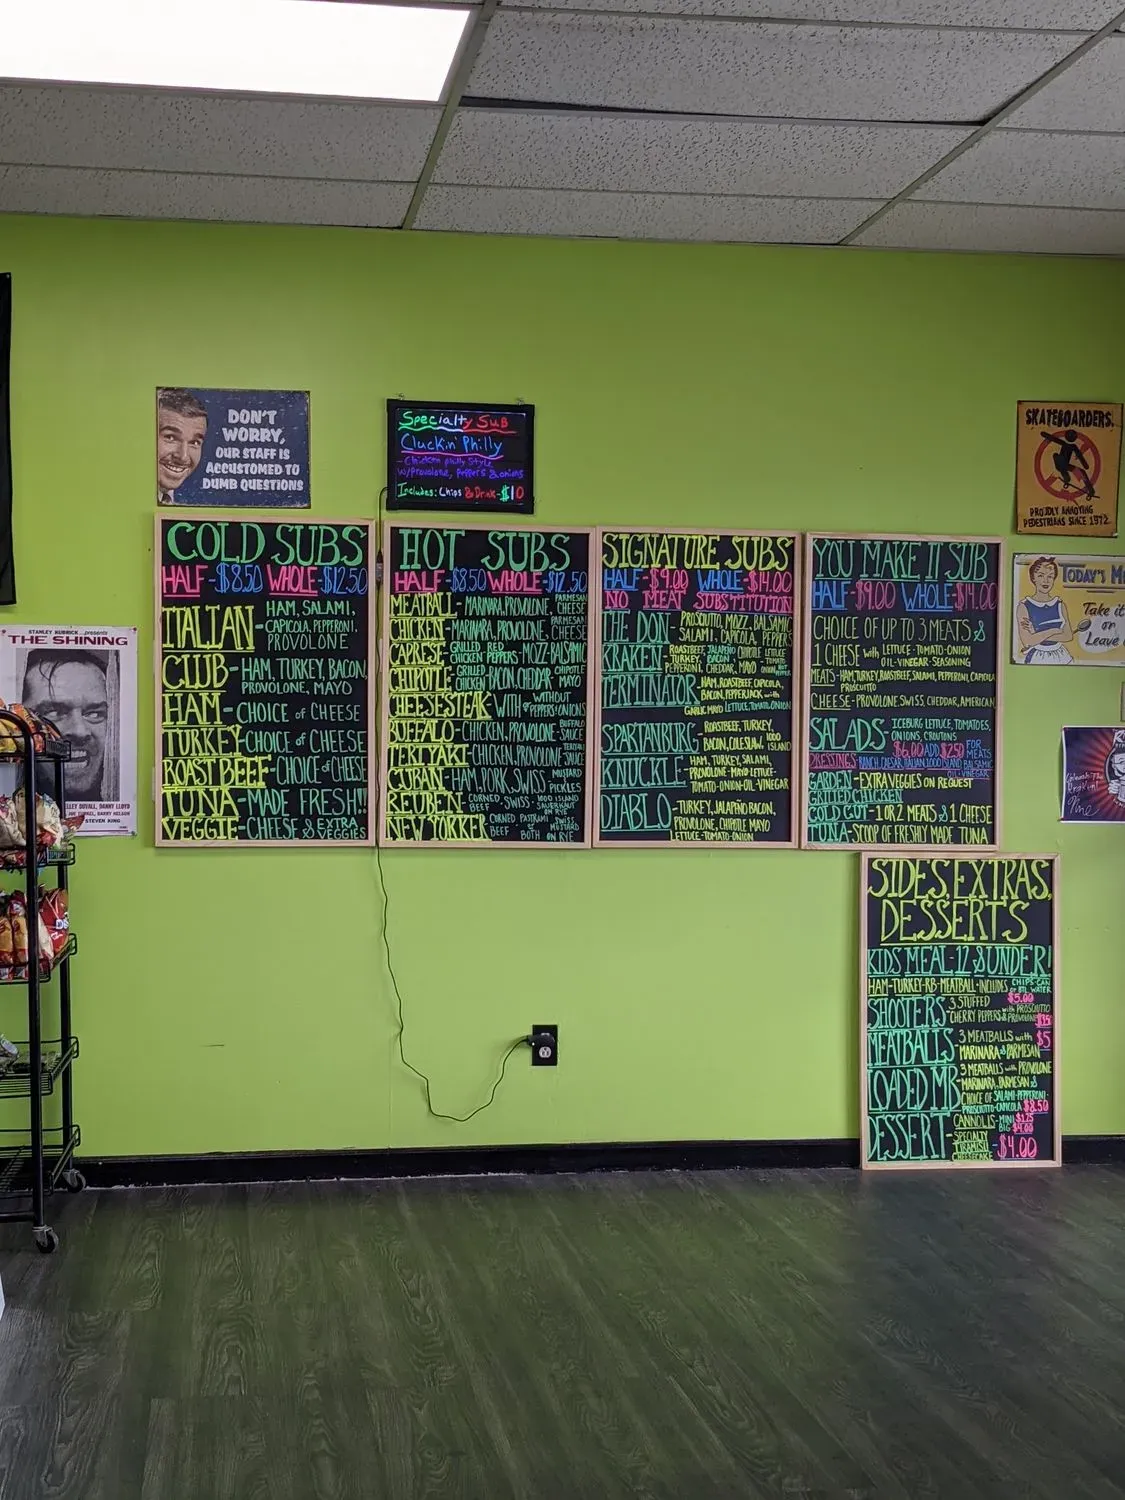 DON'T
WORRY,
OUR STAFF IS
ACCUSTOMED TO
DUMB QUESTIONS
Specialty Sub
Cluckin' Philly
- Chicken philly style
w/Provolone, Peppers & onions
Includes: Chips & Drink - $10
SKATEBOARDERS.
PROUDLY ANNOYING
PEDESTRIANS SINCE 1972
TODAY'S M
Take it
or
Leave
STANLEY KUBRICK presents
THE SHINING
LLEY DUVALL, DANNY LLOYD
STEVEN KING
COLD SUBS
HALF-$8.50 WHOLE-$12.50
ITALIAN- HAM, SALAMI,
CAPICOLA, PEPPERONI,
PROVOLONE
CLUB- HAM, TURKEY, BACON,
PROVOLONE, MAYO
HAM- CHOICE OF CHEESE
TURKEY- CHOICE OF CHEESE
ROAST BEEF- CHOICE OF CHEESE
TUNA- MADE FRESH!!
VEGGIE- CHEESE & EXTRA
VEGGIES
HOT SUBS
HALF-$8.50 WHOLE-$12.50
MEATBALL- MARINARA, PROVOLONE, PARMESAN CHEESE
CHICKEN- MARINARA, PROVOLONE, PARMESAN CHEESE
CAPRESE- GRILLED CHICKEN RED PEPPERS - MOZZ - BALSAMIC
CHIPOTLE- GRILLED CHICKEN, BACON, CHEDDAR, CHIPOTLE MAYO
CHEESESTEAK WITH OR WITHOUT PEPPERS & ONIONS
BUFFALO- CHICKEN, PROVOLONE- BUFFALO SAUCE
TERIYAKI- CHICKEN, PROVOLONE- SAUCE
CUBAN- HAM, PORK, SWISS- MUSTARD PICKLES
REUBEN- CORNED BEEF SWISS- 1000 ISLAND SAUERKRAUT ON RYE
NEW YORKER- CORNED BEEF & PASTRAMI SWISS MUSTARD
BOTH ON RYE
SIGNATURE SUBS
HALF-$9.00 WHOLE-$14.00
NO MEAT SUBSTITUTION
THE DON- PROSCIUTTO, MOZZ, BALSAMIC
SALAMI, CAPICOLA, PEPPERS
KRAKEN- ROASTBEEF, JALAPENO CHIPOTLE LETTUCE
TURKEY, BACON TOMATO
PEPPERONI, CHEDDAR, MAYO
TERMINATOR- HAM, ROASTBEEF, CAPICOLA,
BACON, PEPPERJACK with
GARLIC MAYO LETTUCE, TOMATO, ONION
SPARTANBURG- ROASTBEEF, TURKEY,
BACON, COLESLAW, 1000 ISLAND
KNUCKLE- HAM, TURKEY, SALAMI,
PROVOLONE - MAYO - LETTUCE-
TOMATO-ONION-OIL-VINEGAR
DIABLO- TURKEY, JALAPEÑO BACON,
PROVOLONE, CHIPOTLE MAYO
LETTUCE-TOMATO-ONION
YOU MAKE IT SUB
HALF-$9.00 WHOLE-$14.00
CHOICE OF UP TO 3 MEATS &
1 CHEESE with LETTUCE-TOMATO-ONION
OIL-VINEGAR-SEASONING
MEATS- HAM, TURKEY, ROASTBEEF, SALAMI, PEPPERONI, CAPICOLA
PROSCIUTTO
CHEESE- PROVOLONE, SWISS, CHEDDAR, AMERICAN
SALADS- ICEBURG LETTUCE, TOMATOES,
ONIONS, CROUTONS
$6.00 ADD $2.50 FOR MEATS
DRESSINGS- RANCH, CAESAR, ITALIAN, 1000 ISLAND, BALSAMIC
OIL-VINEGAR
GARDEN- EXTRA VEGGIES ON REQUEST
GRILLED CHICKEN
COLD CUT- 1 OR 2 MEATS & 1 CHEESE
TUNA- SCOOP OF FRESHLY MADE TUNA
SIDES, EXTRAS,
DESSERTS
KIDS MEAL-12 & UNDER!
HAM-TURKEY-RB-MEATBALL-INCLUDES CHIPS CAN or BTL WATER
$5.00
SHOOTERS- 3 STUFFED
CHERRY PEPPERS with PROSCIUTTO & PROVOLONE
MEATBALLS 3 MEATBALLS with $5
MARINARA & PARMESAN
LOADED MB- 3 MEATBALLS with PROVOLONE
MARINARA, PARMESAN &
CHOICE OF SALAMI-PEPPERONI-
PROSCIUTTO-CAPICOLA $8.50
DESSERT- CANNOLIS- MINI $1.25
BIG $4.00
SPECIALTY
TIRAMISU
CHEESECAKE -$4.00